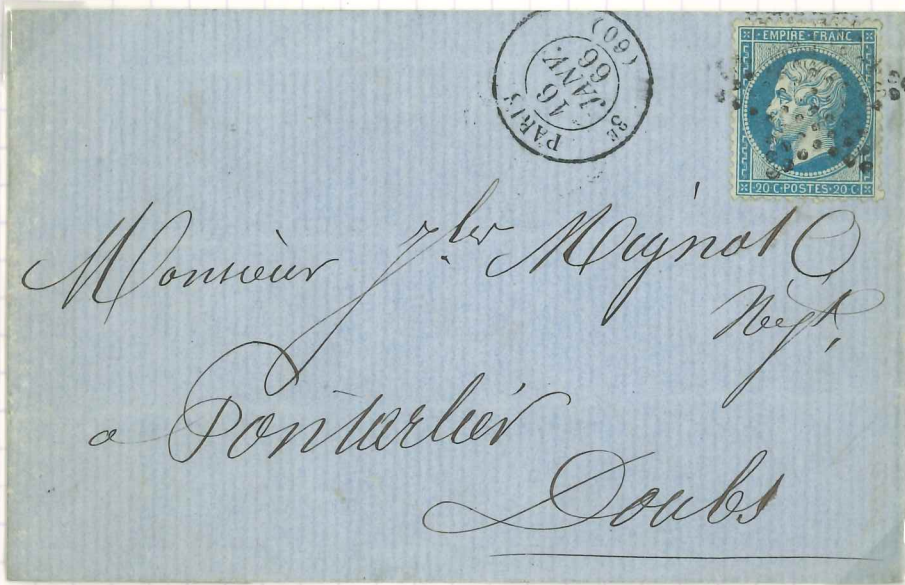 PARIS
(60)
3E
16
JANV.
66
EMPIRE · FRANC
20 C · POSTES · 20 C
Monsieur Jler Mignot
Négt.
a Pontarlier
Doubs